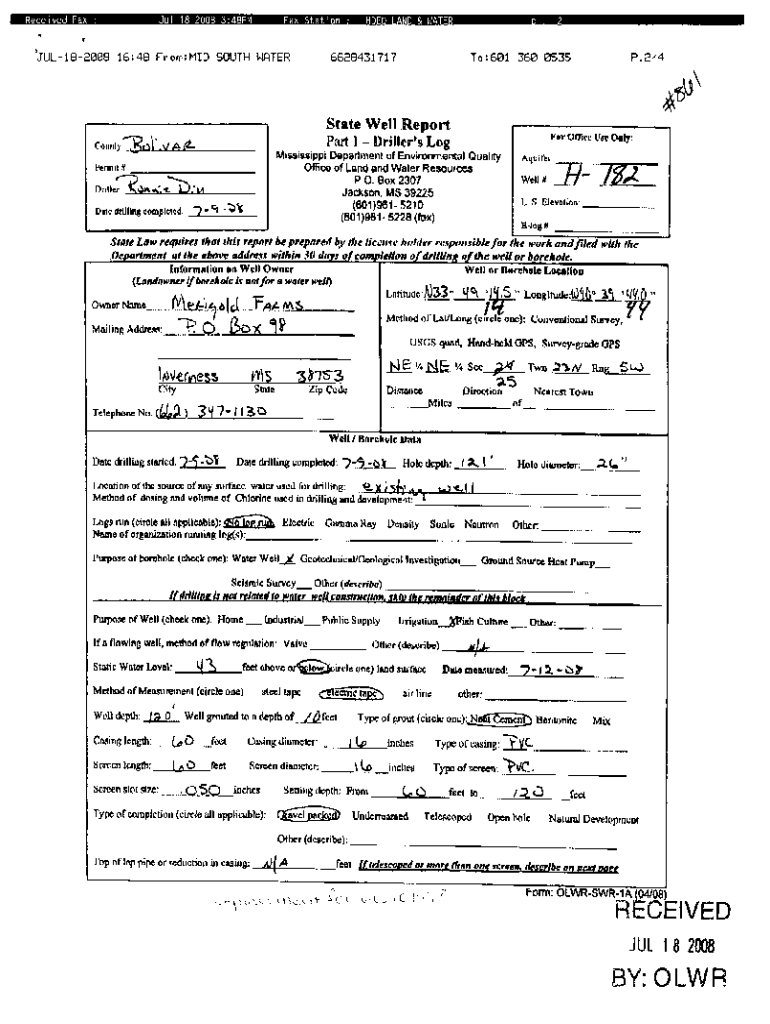 Received Fax : Jul 18 2008 3:48PM Fax Station : MDEQ LAND & WATER p. 2
JUL-18-2008 16:48 From:MID SOUTH WATER 6628431717 To:601 360 0535 P.2/4
#861
State Well Report
Part 1 – Driller's Log
Mississippi Department of Environmental Quality
Office of Land and Water Resources
P O. Box 2307
Jackson, MS 39225
(601)961- 5210
(601)961- 5228 (fax)
County Bolivar
Permit #
Driller
Date drilling completed. 7-9-08
For Office Use Only:
Aquifer
Well # H- 182
L. S Elevation:
E-log #
State Law requires that this report be prepared by the license holder responsible for the work and filed with the
Department at the above address within 30 days of completion of drilling of the well or borehole.
Information on Well Owner
(Landowner if borehole is not for a water well)
Owner Name Merigold Farms
Mailing Address: P.O. Box 98
Inverness MS 38753
City State Zip Code
Telephone No. (662) 347-1130
Well or Borehole Location
Latitude: N33- 49 '14.5" Longitude: W90° 39 '44.0"
14 44
Method of Lat/Long (circle one): Conventional Survey,
USGS quad, Hand-held GPS, Survey-grade GPS
NE ¼ NE ¼ Sec 24 Twn 23N Rng 5W
25
Distance Direction Nearest Town
Miles of
Well / Borehole Data
Date drilling started. 7-9-08 Date drilling completed: 7-9-08 Hole depth: 121' Hole diameter: 26"
Location of the source of any surface water used for drilling: existing well
Method of dosing and volume of Chlorine used in drilling and development:
Logs run (circle all applicable): No log run Electric Gamma Ray Density Sonic Neutron Other:
Name of organization running log(s):
Purpose of borehole (check one): Water Well X Geotechnical/Geological Investigation Ground Source Heat Pump
Seismic Survey Other (describe)
If drilling is not related to water well construction, skip the remainder of this block
Purpose of Well (check one). Home Industrial Public Supply Irrigation X Fish Culture Other:
If a flowing well, method of flow regulation: Valve Other (describe) N/A
Static Water Level: 43 feet above or below (circle one) land surface Date measured: 7-12-08
Method of Measurement (circle one) steel tape electric tape air line other:
Well depth: 120' Well grouted to a depth of 10 feet Type of grout (circle one): Neat Cement Bentonite Mix
Casing length: 60 feet Casing diameter: 16 inches Type of casing: PVC
Screen length: 60 feet Screen diameter: 16 inches Type of screen: PVC.
Screen slot size: .050 inches Setting depth: From 60 feet to 120 feet
Type of completion (circle all applicable): Gravel packed Underreamed Telescoped Open hole Natural Development
Other (describe):
Top of lap pipe or reduction in casing: N/A feet If telescoped or more than one screen, describe on next page
Form: OLWR-SWR-1A (04/08)
RECEIVED
JUL 18 2008
BY: OLWR